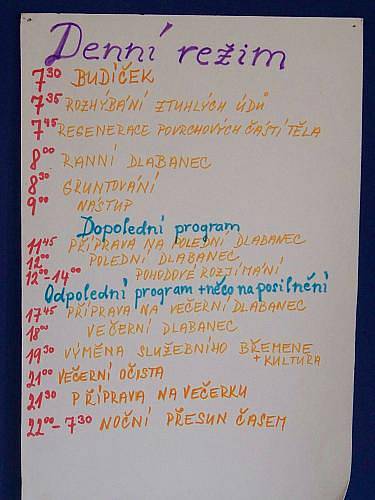 Denní režim
7³⁰ BUDÍČEK
7³⁵ ROZHÝBÁNÍ ZTUHLÝCH ÚDŮ
7⁴⁵ REGENERACE POVRCHOVÝCH ČÁSTÍ TĚLA
8⁰⁰ RANNÍ DLABANEC
8³⁰ GRUNTOVÁNÍ
9⁰⁰ NÁSTUP
Dopolední program
11⁴⁵ PŘÍPRAVA NA POLEDNÍ DLABANEC
12⁰⁰ POLEDNÍ DLABANEC
12⁰⁰-14⁰⁰ POHODOVÉ ROZJÍMÁNÍ
Odpolední program + něco na posilnění
17⁴⁵ PŘÍPRAVA NA VEČERNÍ DLABANEC
18⁰⁰ VEČERNÍ DLABANEC
19³⁰ VÝMĚNA SLUŽEBNÍHO BŘEMENE
+ KULTURA
21⁰⁰ VEČERNÍ OČISTA
21³⁰ PŘÍPRAVA NA VEČERKU
22⁰⁰- 7³⁰ NOČNÍ PŘESUN ČASEM